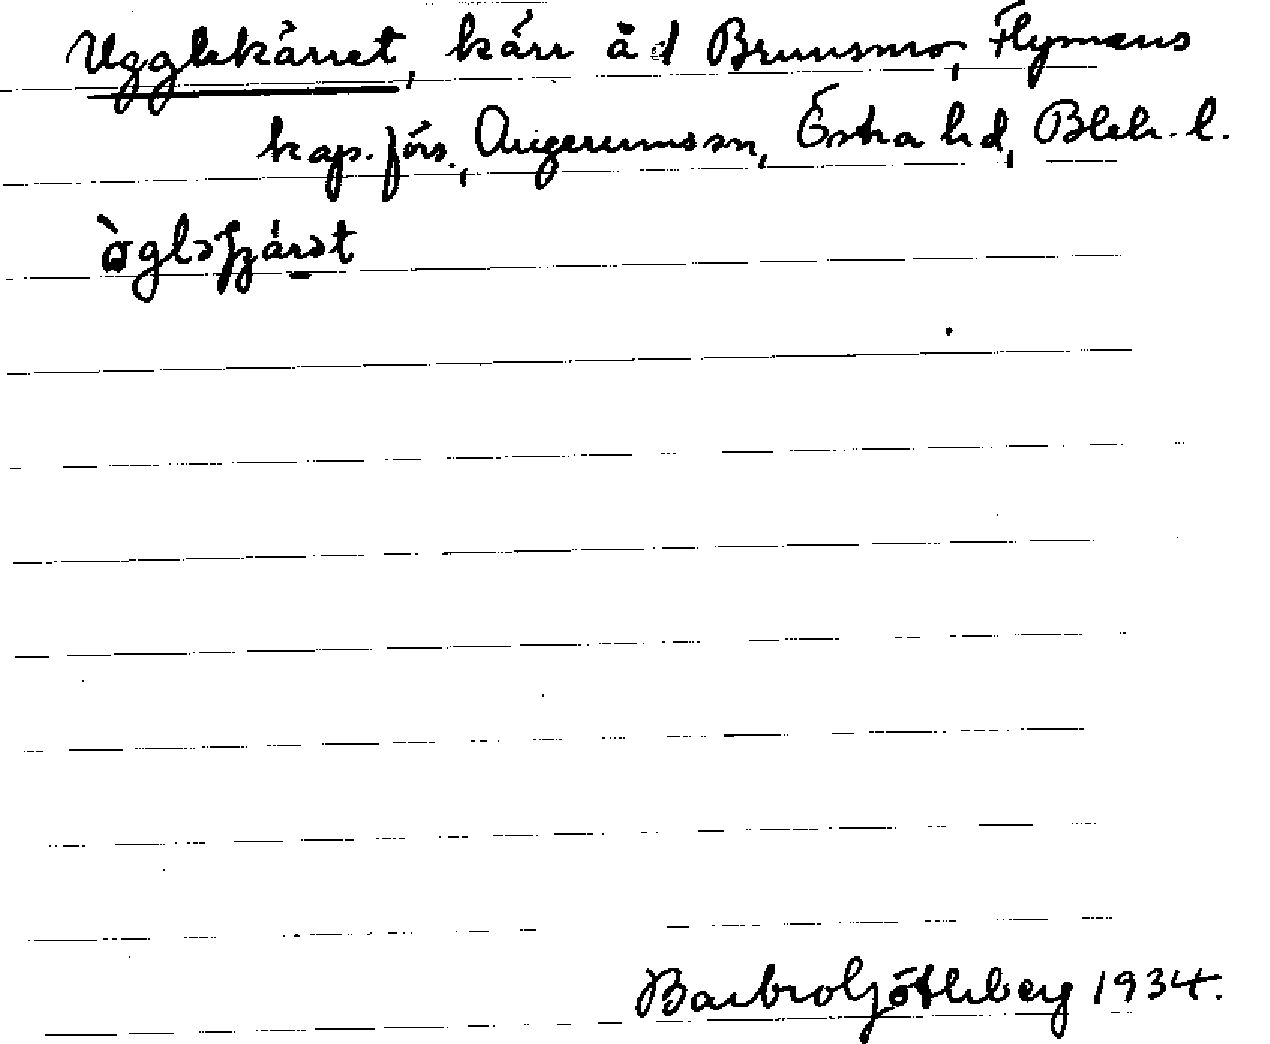 Ugglekärret, kärr å d Brunsmo, Flymens
kap. förs., Augerums sn, Östra hd, Blek. l.
Barbro Götleberg 1934.